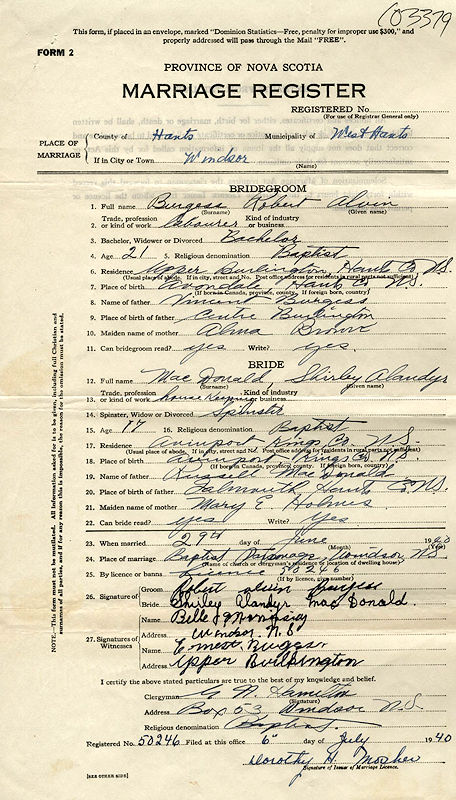 103379
This form, if placed in an envelope, marked "Dominion Statistics—Free, penalty for improper use $300," and
properly addressed will pass through the Mail "FREE".
FORM 2
PROVINCE OF NOVA SCOTIA
MARRIAGE REGISTER
REGISTERED No.
(For use of Registrar General only)
PLACE OF MARRIAGE
County of Hants Municipality of West Hants
If in City or Town Windsor
(Name)
BRIDEGROOM
1. Full name Burgess Robert Alvin
(Surname) (Given name)
2. Trade, profession or kind of work Labourer Kind of industry or business
3. Bachelor, Widower or Divorced Bachelor
4. Age 21 5. Religious denomination Baptist
6. Residence Upper Burlington, Hants Co. N.S.
(Usual place of abode. If in city, street and No. Post office address for residents in rural parts not sufficient)
7. Place of birth Avondale Hants Co. N.S.
(If born in Canada, province, county. If foreign born, country)
8. Name of father Vincent Burgess
9. Place of birth of father Centre Burlington
10. Maiden name of mother Alma Brown
11. Can bridegroom read? yes Write? yes.
BRIDE
12. Full name MacDonald, Shirley
(Surname) (Given name)
13. Trade, profession or kind of work house keeping Kind of industry or business
14. Spinster, Widow or Divorced Spinster
15. Age 17 16. Religious denomination Baptist
17. Residence Avonport Kings Co. N.S.
(Usual place of abode. If in city, street and No. Post office address for residents in rural parts not sufficient)
18. Place of birth Avonport Kings Co. N.S.
(If born in Canada, province, county. If foreign born, country)
19. Name of father Russell MacDonald
20. Place of birth of father Falmouth Hants Co. N.S.
21. Maiden name of mother Mary E. Holmes
22. Can bride read? yes Write? Yes
23. When married 29th day of June 1940
(Month) (Year)
24. Place of marriage Baptist Parsonage Windsor, N.S.
(Name of church or clergyman's residence or location of dwelling house)
25. By licence or banns Licence 50246
(If by licence, give number)
26. Signature of Groom Robert Alvin Burgess
Bride Shirley MacDonald.
27. Signatures of Witnesses
Name Belle
Address Windsor. N.S
Name Ernest
Address Upper Burlington
I certify the above stated particulars are true to the best of my knowledge and belief.
Clergyman G. N. Hamilton
(Signature)
Address Box 53 Windsor N.S.
Religious denomination Baptist
Registered No. 50246 Filed at this office 6" day of July 1940
Dorothy H. Mosher
Signature of Issuer of Marriage Licence.
[SEE OTHER SIDE]
NOTE.—This form must not be mutilated. All information asked for is to be given, including full Christian and
surnames of all parties, and if for any reason this is impossible, the reason for the omission must be stated.